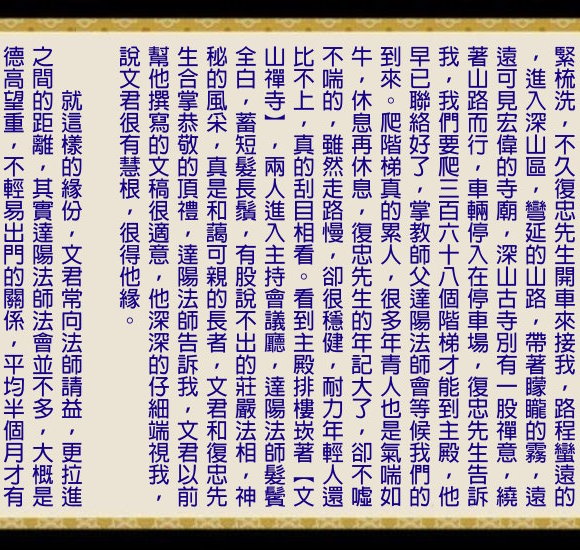 緊梳洗，不久復忠先生開車來接我，路程蠻遠的
，進入深山區，彎延的山路，帶著矇矓的霧，遠
遠可見宏偉的寺廟，深山古寺別有一股禪意，繞
著山路而行，車輛停入在停車場，復忠先生告訴
我，我們要爬三百六十八個階梯才能到主殿，他
早已聯絡好了，掌教師父達陽法師會等候我們的
到來。爬階梯真的累人，很多年青人也是氣喘如
牛，休息再休息，復忠先生的年記大了，卻不噓
不喘的，雖然走路慢，卻很穩健，耐力年輕人還
比不上，真的刮目相看。看到主殿排樓崁著【文
山禪寺】，兩人進入主持會議廳，達陽法師髮鬢
全白，蓄短髮長鬚，有股說不出的莊嚴法相，神
秘的風采，真是和藹可親的長者，文君和復忠先
生合掌恭敬的頂禮，達陽法師告訴我，文君以前
幫他撰寫的文稿很適意，他深深的仔細端視我，
說文君很有慧根，很得他緣。
就這樣的緣份，文君常向法師請益，更拉進
之間的距離，其實達陽法師法會並不多，大概是
德高望重，不輕易出門的關係，平均半個月才有